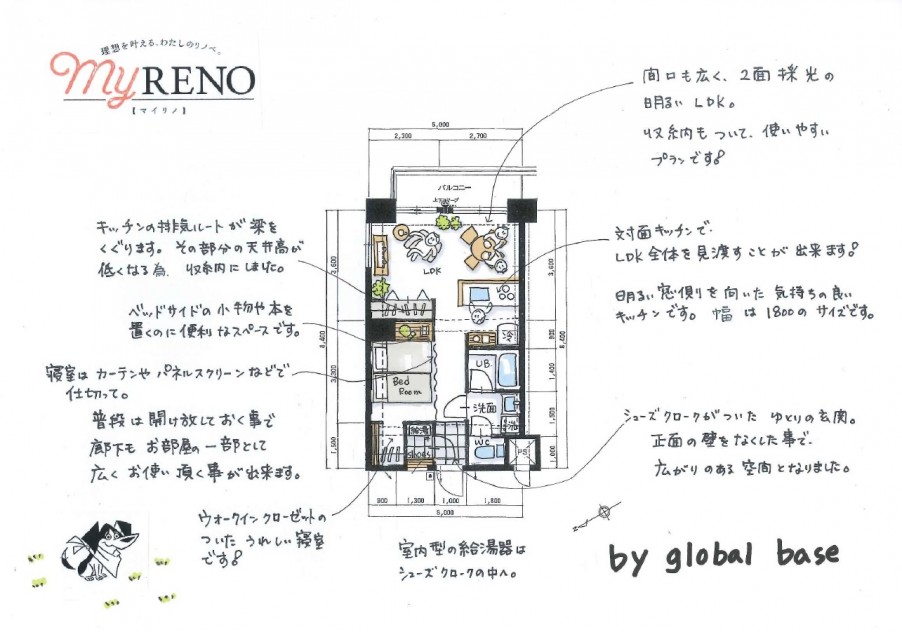 理想を叶える、わたしのリノベ。
my RENO
【マイリノ】
間口も広く、2面採光の
明るい LDK。
収納も ついて、使いやすい
プランです。
キッチンの排気ルートが梁を
くぐります。その部分の天井高が
低くなる為、収納にしました。
対面キッチンで
LDK全体を見渡すことが出来ます。
明るい窓側を向いた気持ちの良い
キッチンです。幅は1800のサイズです。
ベッドサイドの小物や本を
置くのに便利なスペースです。
寝室はカーテンやパネルスクリーンなどで
仕切って。
普段は開け放しておく事で
廊下も お部屋の一部として
広く お使い頂く事が出来ます。
シューズクロークがついた ゆとりの玄関。
正面の壁をなくした事で、
広がりのある空間となりました。
ウォークインクローゼットの
ついた うれしい寝室
です。
室内型の給湯器は
シューズクロークの中へ。
5,000
2,300 2,700
バルコニー
LDK
冷
UB
Bed
Room
洗面
洗
給湯
shoes
WC
PS
3,600
8,400
3,300
1,500
3,600
900
1,400
1,500
1,000
8,400
900 1,300 1,000 1,800
5,000
by global base